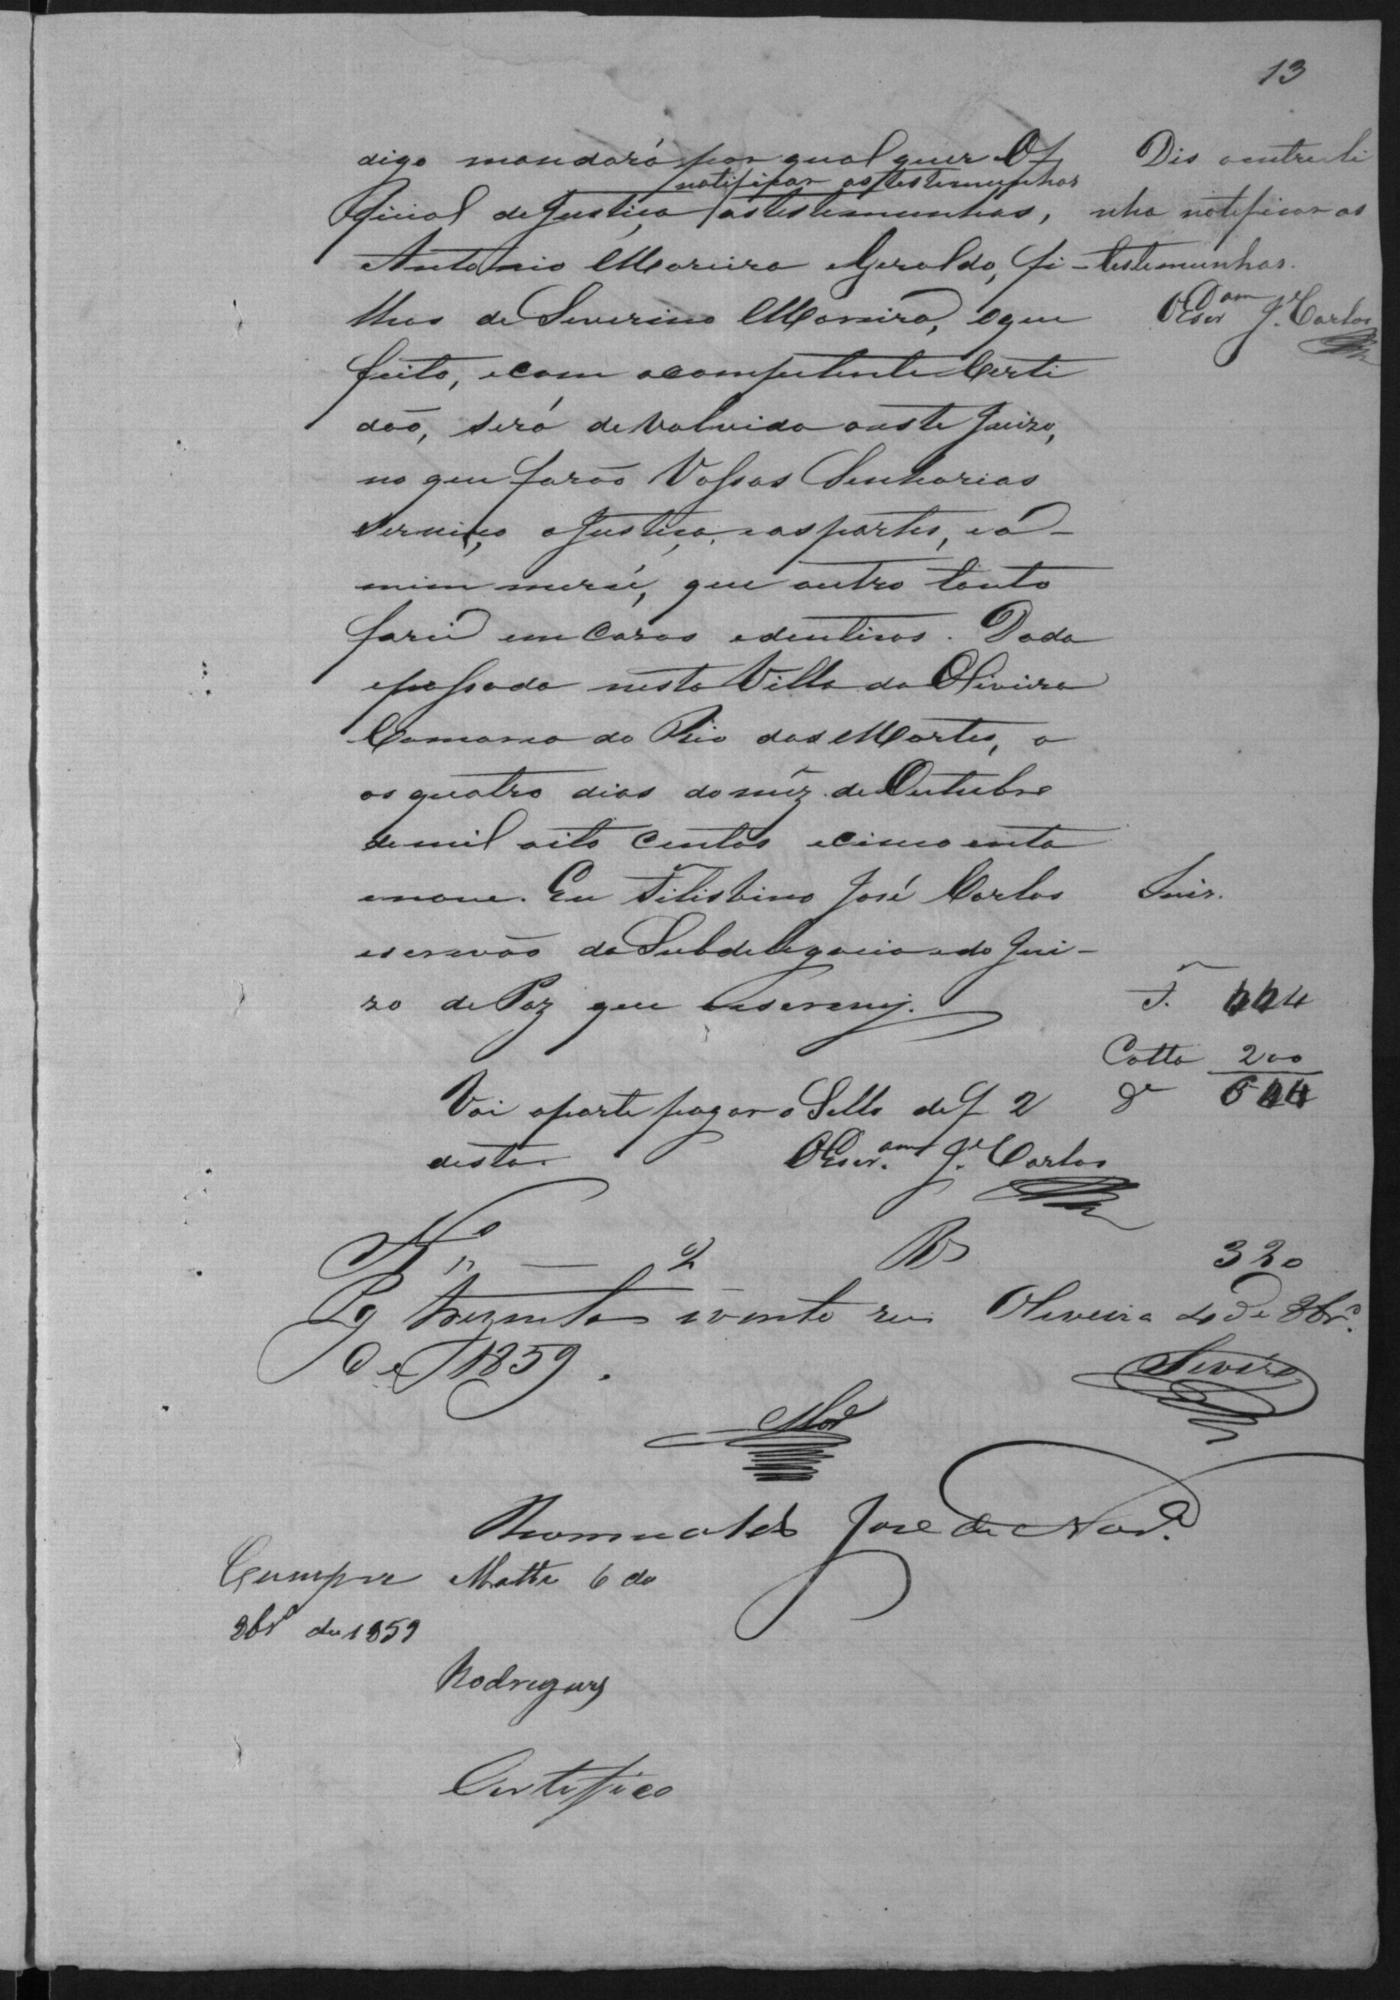 13
digo mandará por qual quer Of
notificar as testemunhas
ficial de Justiça, as testemunhas,
Antonio Moreira e Geraldo, fi-
lhos de Severino Moreira, e que
feito, e com a competente Certi
dão, será devolvida a este Juizo,
no que farão Vossas Senhorias
serviço, a Justiça, e as partes, e á
mim mercê, que outro tanto
farei em casos edenticos. Dada
e passada nesta Villa da Oliveira
Comarca do Rio das Mortes, a
os quatro dias do mêz de Outubro
de mil oito centos e cincoenta
e nove. Eu Filisbino José Carlos
escrivão da Subdelegacia e do Jui-
zo de Paz que escrevy.
Dis a entreli
nha notificar as
testemunhas.
O Escr^am J.^e Carlos
F. 444
Cotta 200
644
Vai a parte pagar o Sello de f 2
desta.
O Escr.^am J.^e Carlos
N.º 2 Rs 320
Pg trezentos e vinte reis Oliveira 4 de 8br.º
de 1859.
Romualdo José de
Cumpra Matta 6 do
8br.º de 1859
Rodrigues
Certifico